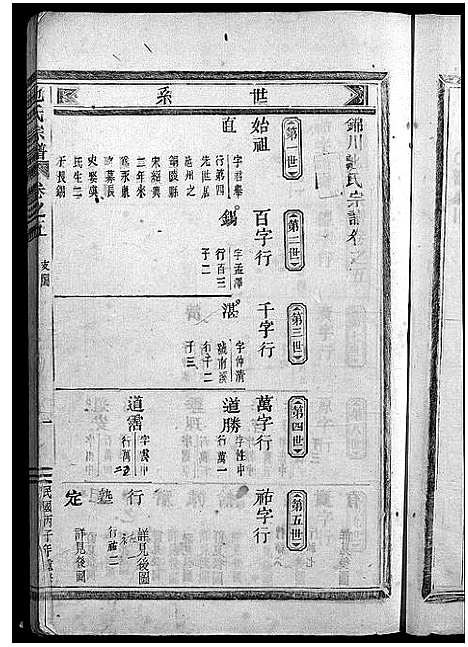 世系
錦川施氏宗譜卷之五
第一世
始祖
直
字君舉
行第四
先世居
池州之
銅陵縣
宋紹興
三年來
民生二
子長錫
第二世
百字行
錫
字孟澤
行百三
子二
第三世
千字行
湛
字仲清
號南溪
行千二
子三
第四世
萬字行
道勝
字性中
行萬一
道霈
行萬二
第五世
祐字行
行
詳見後圖
行祐二
塾
定
詳見後圖
施氏宗譜
卷之五
支圖
一
民國丙子年重修